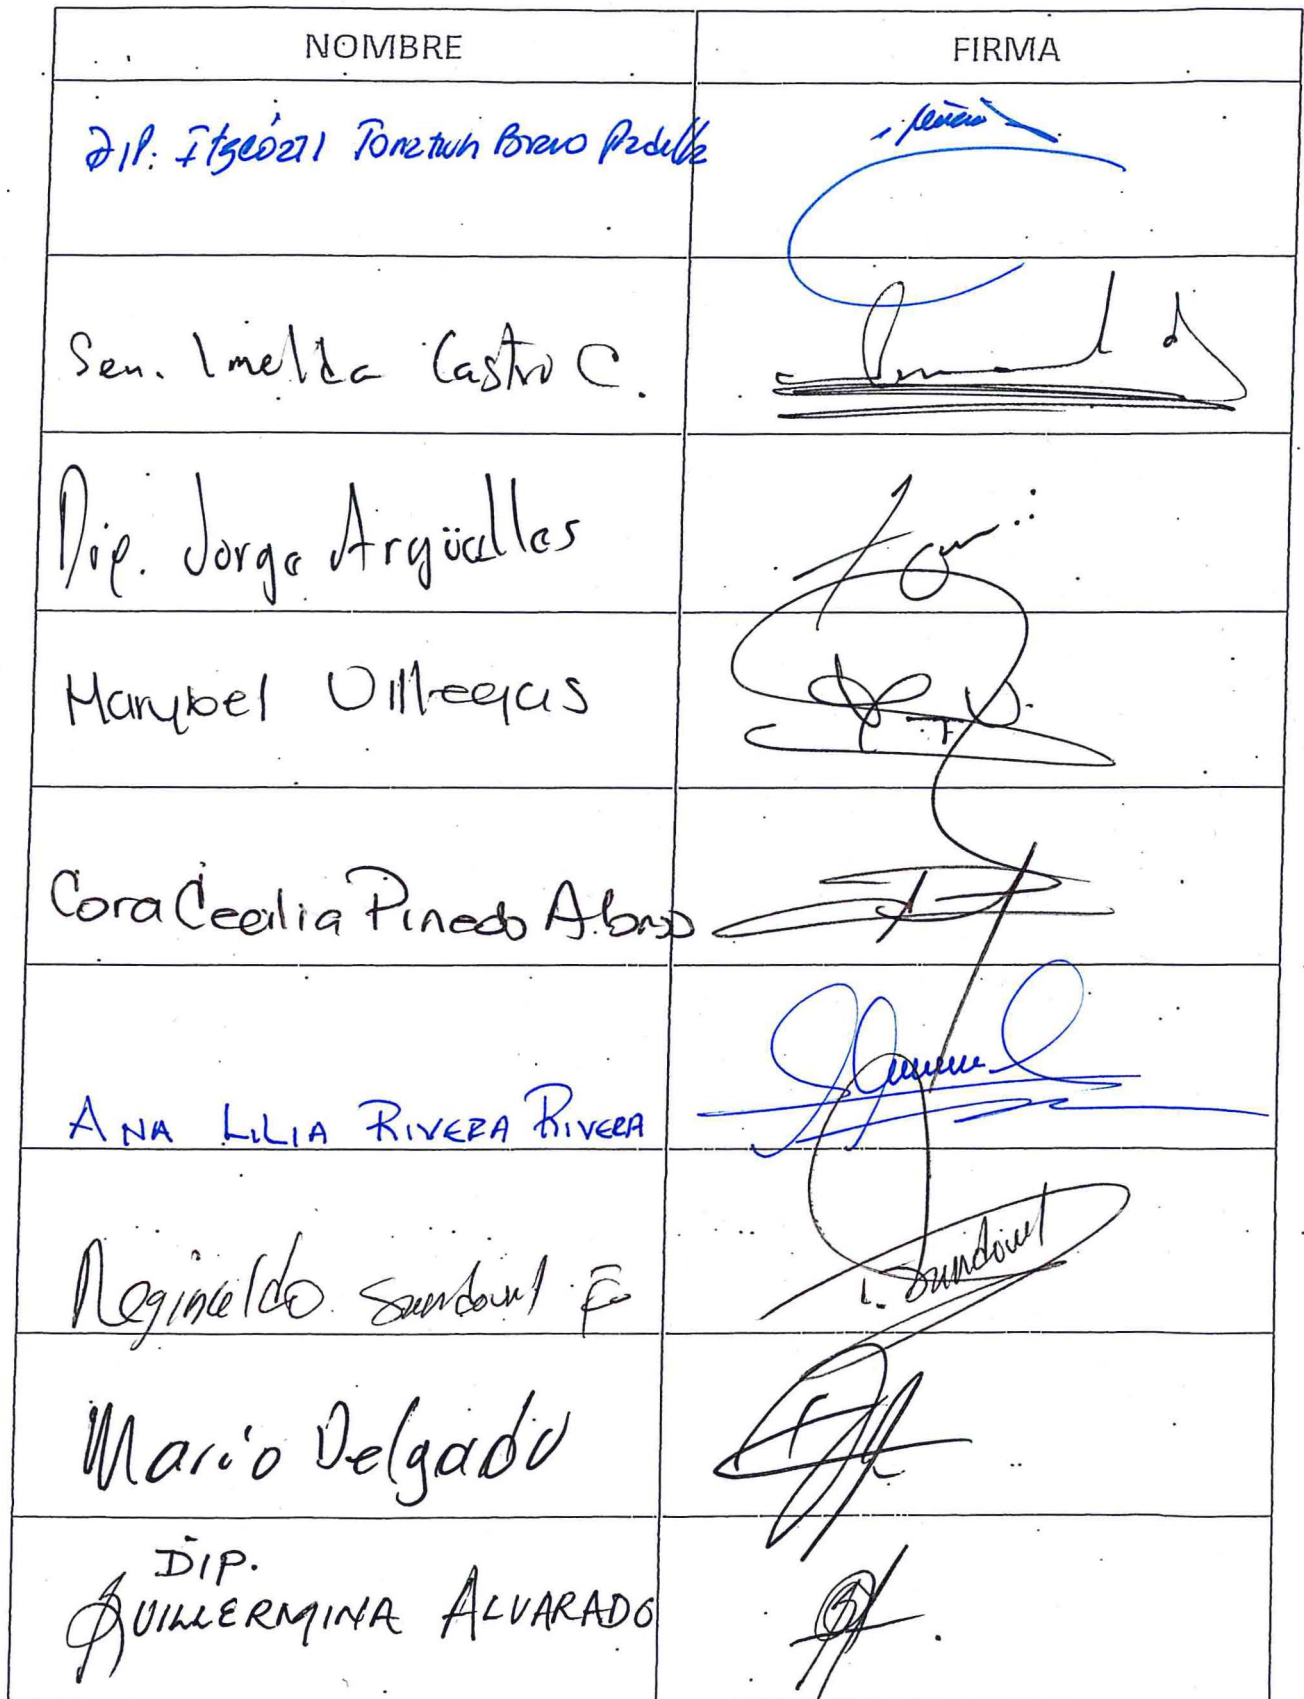 NOMBRE FIRMA
DIP. Itzcóatl Tonatiuh Bravo Padilla
Sen. Imelda Castro C.
Dip. Jorge Argüelles
Marybel Villegas
Cora Cecilia Pinedo Alonso
ANA LILIA RIVERA RIVERA
Reginaldo Sandoval F
L. Sandoval
Mario Delgado
DIP.
GUILLERMINA ALVARADO